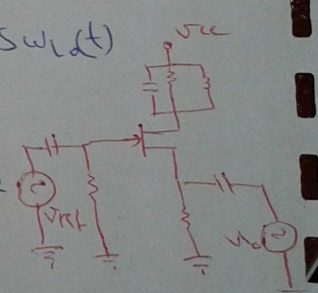 Sω_Lo(t)
Vcc
VRF
VLo